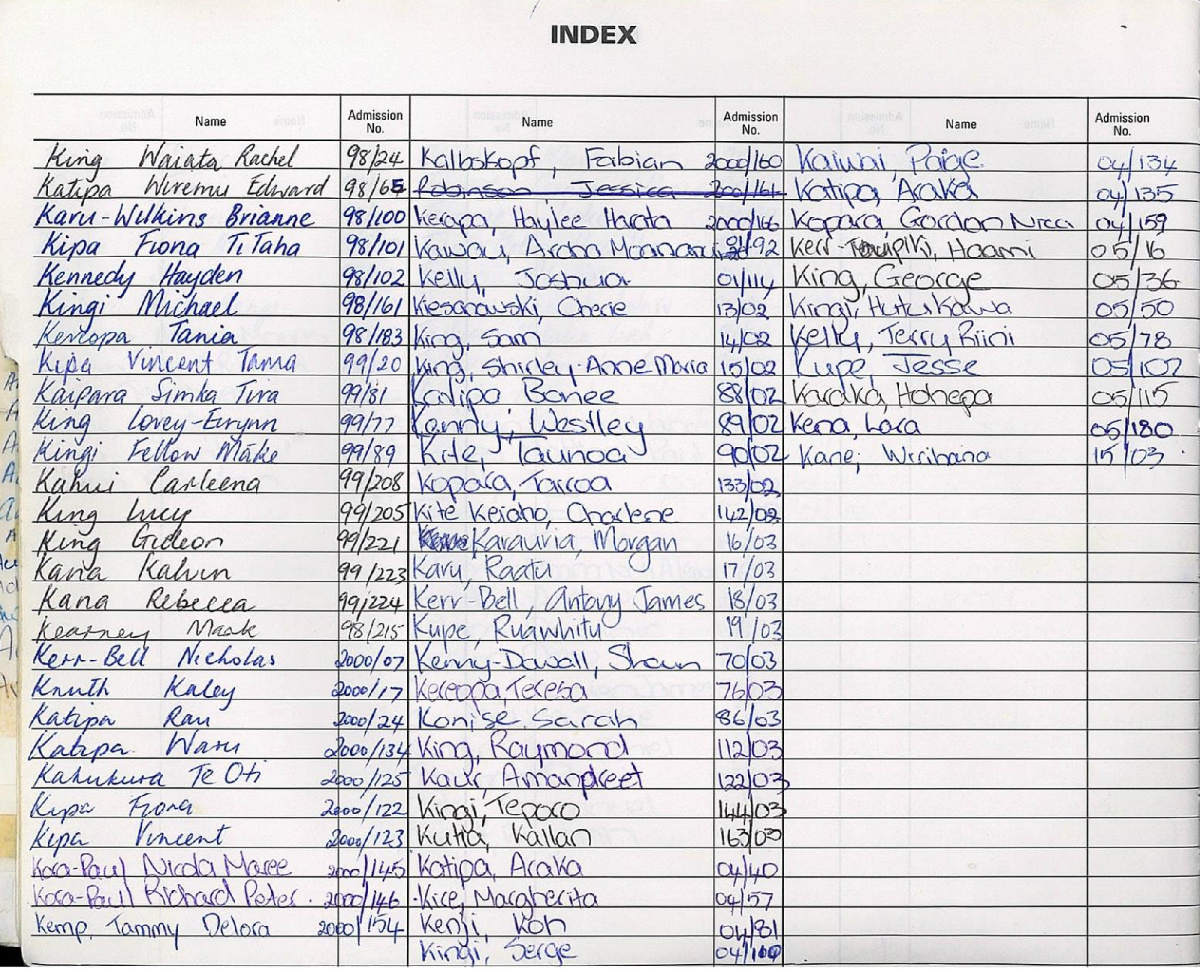 INDEX
Name Admission No.
King Waiata Rachel 98/24
Katipa Wiremu Edward 98/65
Karu-Wilkins Brianne 98/100
Kipa Fiona TiTaha 98/101
Kennedy Hayden 98/102
Kingi Michael 98/161
Kereopa Tania 98/183
Kipa Vincent Tama 99/20
Kaipara Simka Tira 99/81
King Lovey-Emynn 99/77
Kingi Fellow Make 99/89
Kahui Carleena 99/208
King Lucy 99/205
King Gideon 99/221
Kana Kalvin 99/223
Kana Rebecca 99/224
Kearney Mark 98/215
Kerr-Bell Nicholas 2000/07
Knuth Kaley 2000/17
Katipa Rau 2000/24
Katipa Waru 2000/134
Kahukura Te Oti 2000/125
Kipa Fiona 2000/122
Kipa Vincent 2000/123
Kora-Paul Nicola Maree 2000/145
Kora-Paul Richard Peter 2000/146
Kemp, Tammy Delora 2000/154
Name Admission No.
Kalbskopf, Fabian 2000/160
Robinson Jessica 200/164
Kerapa, Haylee Huata 2000/166
Kawau, Aroha 92
Kelly, Joshua 01/114
Kiesanowski, Cherie 13/02
King, Sam 14/02
King, Shirley-Anne Maria 15/02
Katipa Banee 88/02
Kenny, Westley 89/02
Kite, Taunoa 90/02
Kopara, Tairoa 133/02
Kite Keiaho, Charlene 142/02
Karauria, Morgan 16/03
Karu, Raatu 17/03
Kerr-Bell, Antony James 18/03
Kupe, Ruawhitu 19/03
Kenny-Dowall, Shaun 70/03
Kereopa, Teresa 76/03
Konise, Sarah 86/03
King, Raymond 112/03
Kaur, Amanpreet 122/03
Kingi, Teporo 144/03
Kutia, Kallan 163/03
Katipa, Araka 04/40
Kire, Margherita 04/57
Kenji, Koh 04/81
Kingi, Serge 04/100
Name Admission No.
Kaiwai, Paige 04/134
Katipa, Araka 04/135
Kopara, Gordon Nicci 04/159
Kerr- Haami 05/16
King, George 05/36
Kingi, Hutukawa 05/50
Kelly, Terry Riini 05/78
Kupe, Jesse 05/102
Karaka, Hohepa 05/115
Kena, Lara 05/180
Kane, Wirihana 15/03